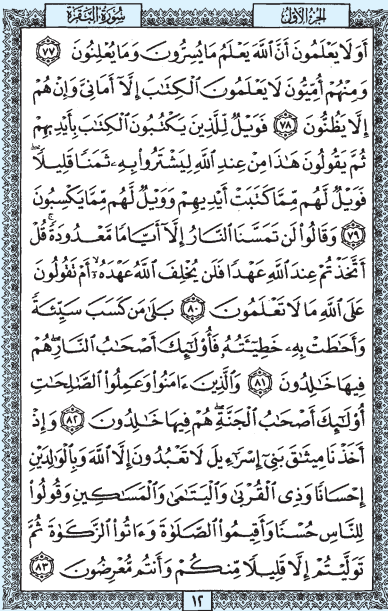 الجزء الأول سورة البقرة
أَوَلَا يَعْلَمُونَ أَنَّ ٱللَّهَ يَعْلَمُ مَا يُسِرُّونَ وَمَا يُعْلِنُونَ ٧٧
وَمِنْهُمْ أُمِّيُّونَ لَا يَعْلَمُونَ ٱلْكِتَٰبَ إِلَّآ أَمَانِىَّ وَإِنْ هُمْ
إِلَّا يَظُنُّونَ ٧٨ فَوَيْلٌ لِّلَّذِينَ يَكْتُبُونَ ٱلْكِتَٰبَ بِأَيْدِيهِمْ
ثُمَّ يَقُولُونَ هَٰذَا مِنْ عِندِ ٱللَّهِ لِيَشْتَرُوا۟ بِهِۦ ثَمَنًا قَلِيلًا ۖ
فَوَيْلٌ لَّهُم مِّمَّا كَتَبَتْ أَيْدِيهِمْ وَوَيْلٌ لَّهُم مِّمَّا يَكْسِبُونَ
٧٩ وَقَالُوا۟ لَن تَمَسَّنَا ٱلنَّارُ إِلَّآ أَيَّامًا مَّعْدُودَةً ۚ قُلْ
أَتَّخَذْتُمْ عِندَ ٱللَّهِ عَهْدًا فَلَن يُخْلِفَ ٱللَّهُ عَهْدَهُۥٓ ۖ أَمْ تَقُولُونَ
عَلَى ٱللَّهِ مَا لَا تَعْلَمُونَ ٨٠ بَلَىٰ مَن كَسَبَ سَيِّئَةً
وَأَحَٰطَتْ بِهِۦ خَطِيٓـَٔتُهُۥ فَأُو۟لَٰٓئِكَ أَصْحَٰبُ ٱلنَّارِ ۖ هُمْ
فِيهَا خَٰلِدُونَ ٨١ وَٱلَّذِينَ ءَامَنُوا۟ وَعَمِلُوا۟ ٱلصَّٰلِحَٰتِ
أُو۟لَٰٓئِكَ أَصْحَٰبُ ٱلْجَنَّةِ ۖ هُمْ فِيهَا خَٰلِدُونَ ٨٢ وَإِذْ
أَخَذْنَا مِيثَٰقَ بَنِىٓ إِسْرَٰٓءِيلَ لَا تَعْبُدُونَ إِلَّا ٱللَّهَ وَبِٱلْوَٰلِدَيْنِ
إِحْسَانًا وَذِى ٱلْقُرْبَىٰ وَٱلْيَتَٰمَىٰ وَٱلْمَسَٰكِينِ وَقُولُوا۟
لِلنَّاسِ حُسْنًا وَأَقِيمُوا۟ ٱلصَّلَوٰةَ وَءَاتُوا۟ ٱلزَّكَوٰةَ ثُمَّ
تَوَلَّيْتُمْ إِلَّا قَلِيلًا مِّنكُمْ وَأَنتُم مُّعْرِضُونَ ٨٣
١٢